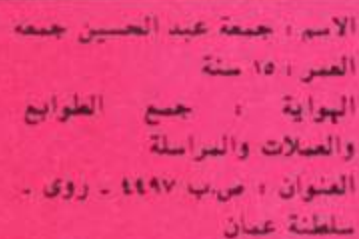 الاسم : جمعة عبد الحسين جمعه
العمر : ١٥ سنة
الهواية : جمع الطوابع
والعملات والمراسلة
العنوان : ص.ب ٤٤٩٧ ـ روى ـ
سلطنة عمان